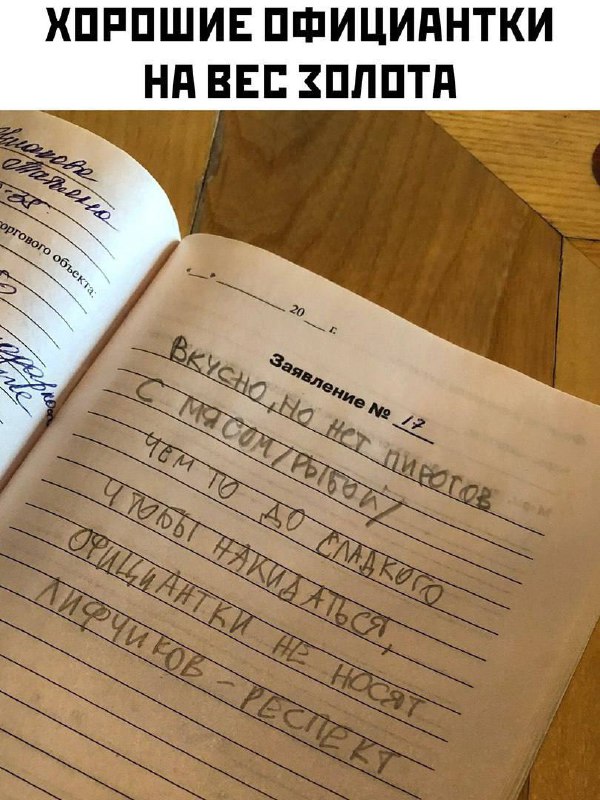 ХОРОШИЕ ОФИЦИАНТКИ
НА ВЕС ЗОЛОТА
торгового объекта:
« » 20 г.
Заявление № 17
ВКУСНО, НО НЕТ ПИРОГОВ
С МЯСОМ/РЫБОЙ/
ЧЕМ ТО ДО СЛАДКОГО
ЧТОБЫ НАКИДАТЬСЯ,
ОФИЦИАНТКИ НЕ НОСЯТ
ЛИФЧИКОВ - РЕСПЕКТ